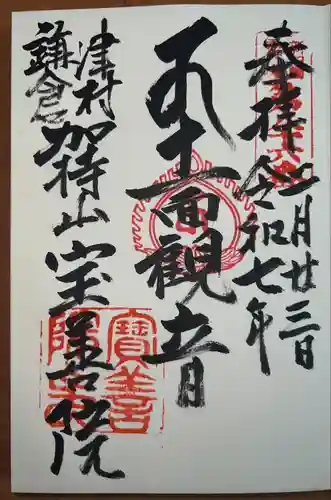 奉拝 令和七年
二月廿三日
十一面観音
鎌倉
津村
加持山 宝善院
寶善